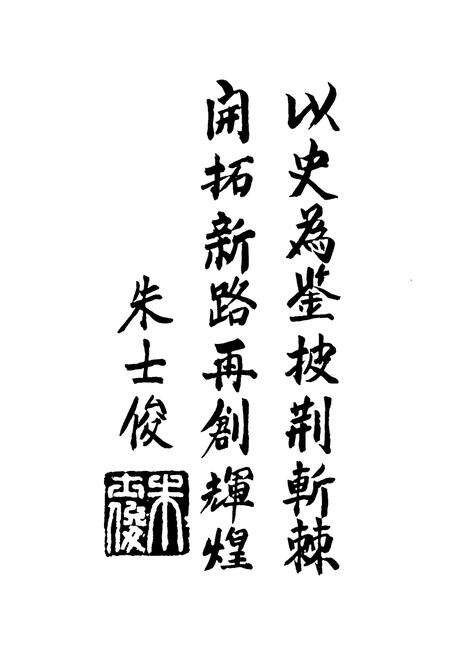 以史為鉴披荆斬棘
開拓新路再創輝煌
朱士俊
朱士俊